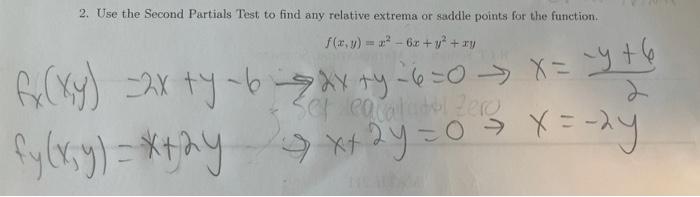 2. Use the Second Partials Test to find any relative extrema or saddle points for the function.
f(x, y) = x² − 6x + y² + xy
fx(x,y) = 2x + y - 6 → 2x + y - 6 = 0 → x = (-y + 6)/2
set equal to zero
fy(x,y) = x + 2y → x + 2y = 0 → x = -2y